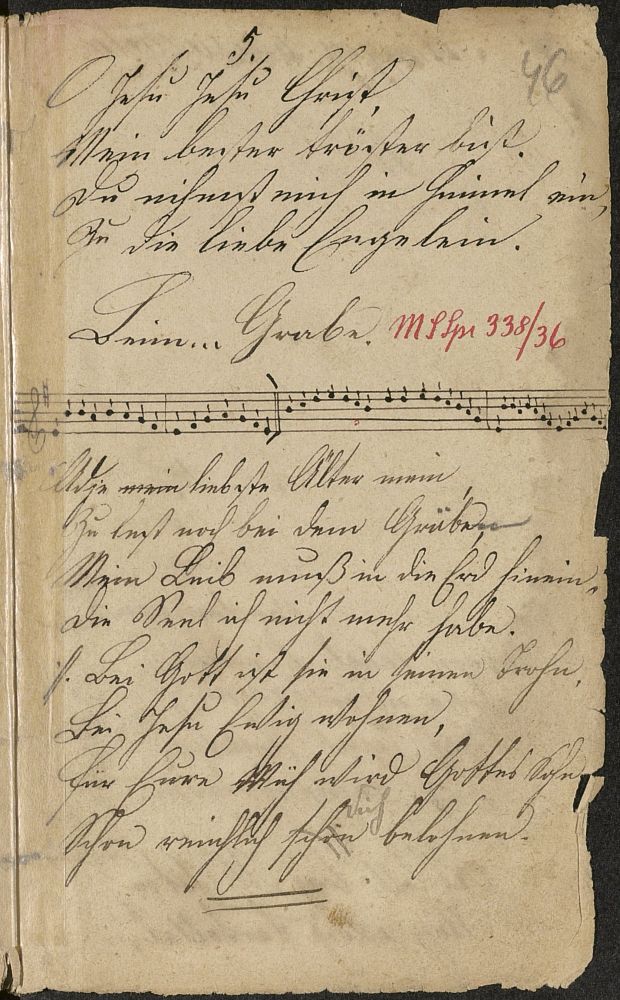 46
5.
O Jesu Jesu Christ,
Mein bester tröster bist.
Du nihmst mich in Himmel ein,
Zu die liebe Engelein.
Beim... Grabe.
338/36
Adje mein liebste Älter mein,
Zu lest noch bei dem Gräben,
Mein Leib muß in die Erd hinein,
Die Seel ich nicht mehr habe.
Bei Gott ist sie in seinen Trohn,
Bei Jesu Ewig wohnen,
Für Eure Müh wird Gottes Sohn
Schon reichlich schön belohnen.